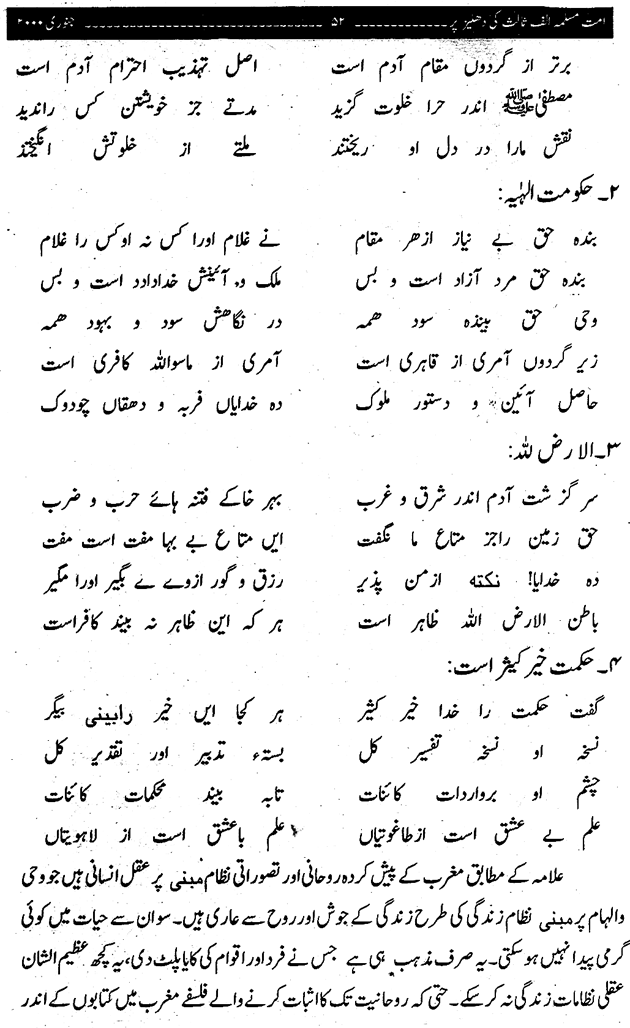 امت مسلمہ الف ثالث کی دھلیز پر ۵۲ جنوری ۲۰۰۰
برتر از گردوں مقام آدم است اصل تہذیب احترام آدم است
مصطفیٰ ﷺ اندر حرا خلوت گزید مدتے جز خویشتن کس راندید
نقش مارا در دل او ریختند ملتے از خلوتش انگیختند
۲۔ حکومت الہٰیہ:
بندہ حق بے نیاز ازھر مقام نے غلام اورا کس نہ اوکس را غلام
بندہ حق مرد آزاد است و بس ملک و آئینش خدادادد است و بس
وحی حق بیندہ سود ھمہ در نگاھش سود و بہود ھمہ
زیر گردوں آمری از قاہری است آمری از ماسواللہ کافری است
حاصل آئین و دستور ملوک دہ خدایاں فربہ و دھقاں چودوک
۳۔الارض للہ:
سر گزشت آدم اندر شرق و غرب بہر خاکے فتنہ ہائے حرب و ضرب
حق زمین راجز متاع ما نگفت ایں متاع بے بہا مفت است مفت
دہ خدایا! نکتہ ازمن پذیر رزق و گور ازوے بگیر اورا مگیر
باطن الارض اللہ ظاہر است ہر کہ این ظاہر نہ بیند کافراست
۴۔ حکمت خیر کیثر است:
گفت حکمت را خدا خیر کثیر ہر کجا ایں خیر رابینی بیگر
نسخہ او نسخہ تفسیر کل بستہء تدبیر اور تقدیر کل
چشم او برواردات کائنات تابہ بیند محکمات کائنات
علم بے عشق است ازطاغوتیاں علم باعشق است از لاہویتاں
علامہ کے مطابق مغرب کے پیش کردہ روحانی اور تصوراتی نظام مبنی پر عقل انسانی ہیں جو وحی
والہام پر مبنی نظام زندگی کی طرح زندگی کے جوش اور روح سے عاری ہیں۔ سو ان سے حیات میں کوئی
گرمی پیدا نہیں ہو سکتی۔ یہ صرف مذہب ہی ہے جس نے فرد اور اقوام کی کایا پلٹ دی، یہ کچھ عظیم الشان
عقلی نظامات زندگی نہ کر سکے۔ حتی کہ روحانیت تک کا اثبات کرنے والے فلسفے مغرب میں کتابوں کے اندر